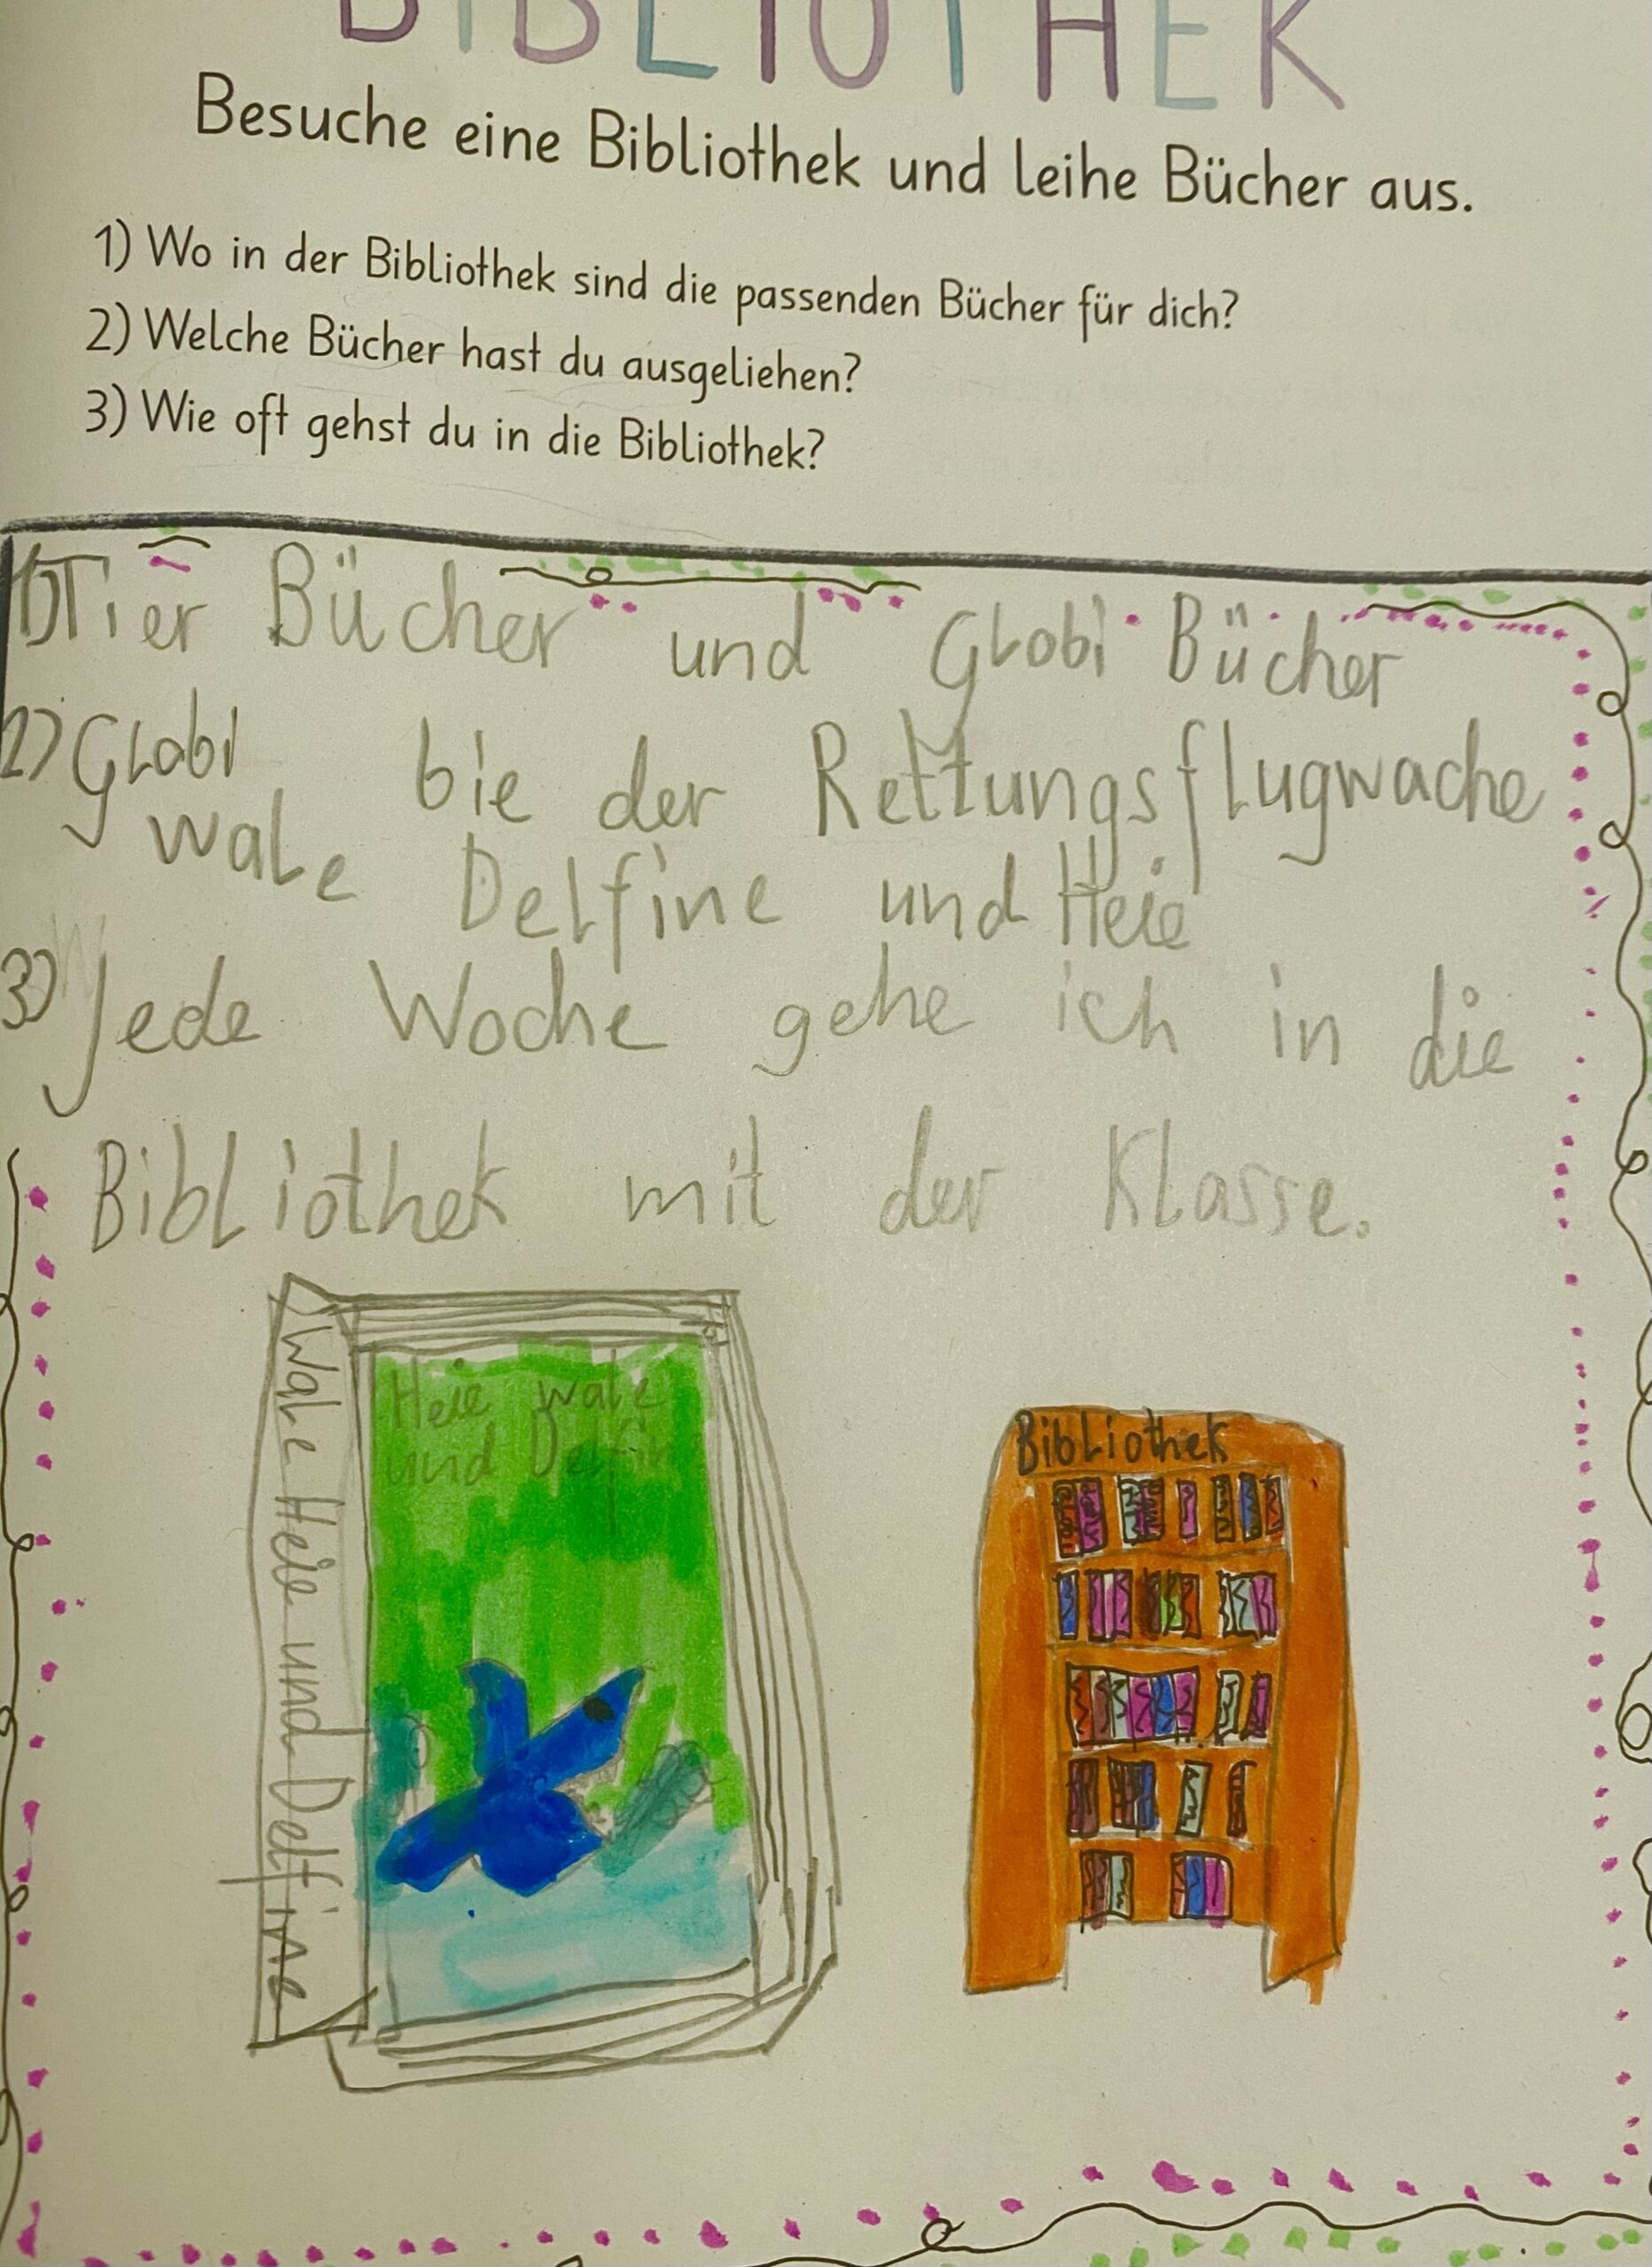 BIBLIOTHEK
Besuche eine Bibliothek und leihe Bücher aus.
1) Wo in der Bibliothek sind die passenden Bücher für dich?
2) Welche Bücher hast du ausgeliehen?
3) Wie oft gehst du in die Bibliothek?
1) Tier Bücher und Globi Bücher
2) Globi bie der Rettungsflugwache
wale Delfine und Heie
3) Jede Woche gehe ich in die
Bibliothek mit der Klasse.
Wale Heie und Delfine
Heie wale
und Delfin
Bibliothek